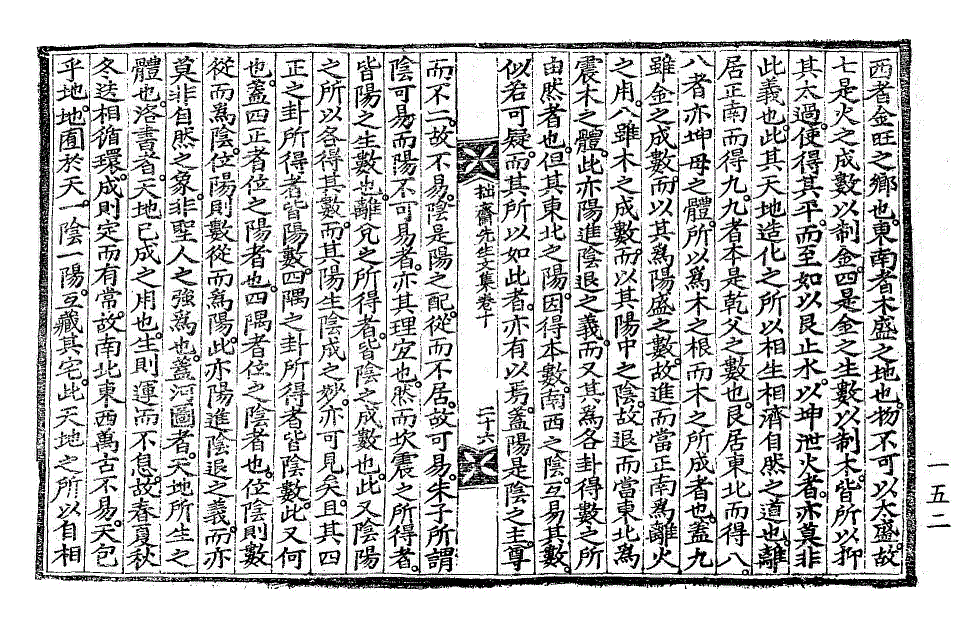 西者金旺之鄕也。東南者木盛之地也。物不可以太盛。故
七是火之成數以制金。四是金之生數以制木。皆所以抑
其太過。使得其平。而至如以艮止水。以坤泄火者。亦莫非
此義也。此其天地造化之所以相生相濟自然之道也。離
居正南而得九。九者本是乾父之數也。艮居東北而得八。
八者亦坤母之體。所以爲木之根而木之所成者也。蓋九
雖金之成數。而以其爲陽盛之數。故進而當正南爲離火
之用。八雖木之成數。而以其陽中之陰。故退而當東北爲
震木之體。此亦陽進陰退之義。而又其爲各卦得數之所
由然者也。但其東北之陽。因得本數。南西之陰。互易其數。
似若可疑。而其所以如此者。亦有以焉。蓋陽是陰之主。尊
拙齋先生文集卷十
二十六
而不二。故不易。陰是陽之配。從而不居。故可易。朱子所謂
陰可易而陽不可易者。亦其理宜也。然而坎震之所得者。
皆陽之生數也。離兌之所得者。皆陰之成數也。此又陰陽
之所以各得其數。而其陽生陰成之妙。亦可見矣。且其四
正之卦所得者皆陽數。四隅之卦所得者皆陰數。此又何
也。蓋四正者位之陽者也。四隅者位之陰者也。位陰則數
從而爲陰。位陽則數從而爲陽。此亦陽進陰退之義。而亦
莫非自然之象。非聖人之強爲也。蓋河圖者。天地所生之
體也。洛書者。天地已成之用也。生則運而不息。故春夏秋
冬迭相循環。成則定而有常。故南北東西萬古不易。天包
乎地。地囿於天。一陰一陽。互藏其宅。此天地之所以自相
一五二